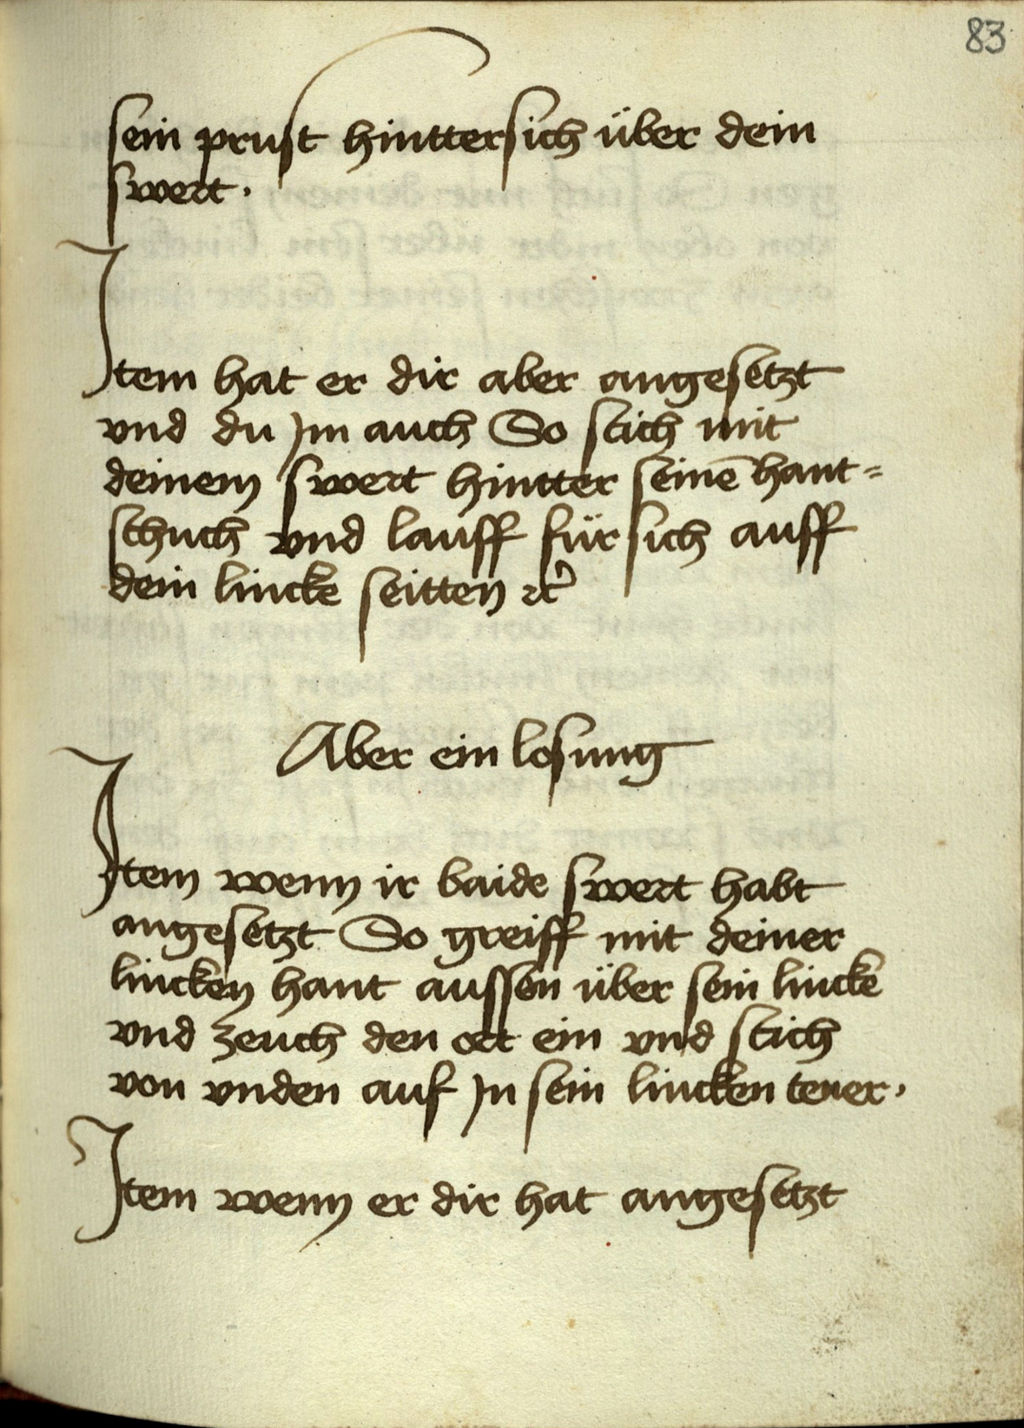 83
sein prust hinttersich über dein
swert.
Item hat er dir aber angesetzt
vnd du Jm auch So stich mit
deinem swert hintter seinē hant=
schuch vnd lauff für sich auff
dein lincke seitten ꝛc̄
Aber ein losung
Item wenn ir baide swert habt
angesetzt So greiff mit deiner
lincken hant aussen über sein lincke
vnd zeuch den ort ein vnd stich
von vnden auf Jn sein lincken tener.
Item wenn er dir hat angesetzt